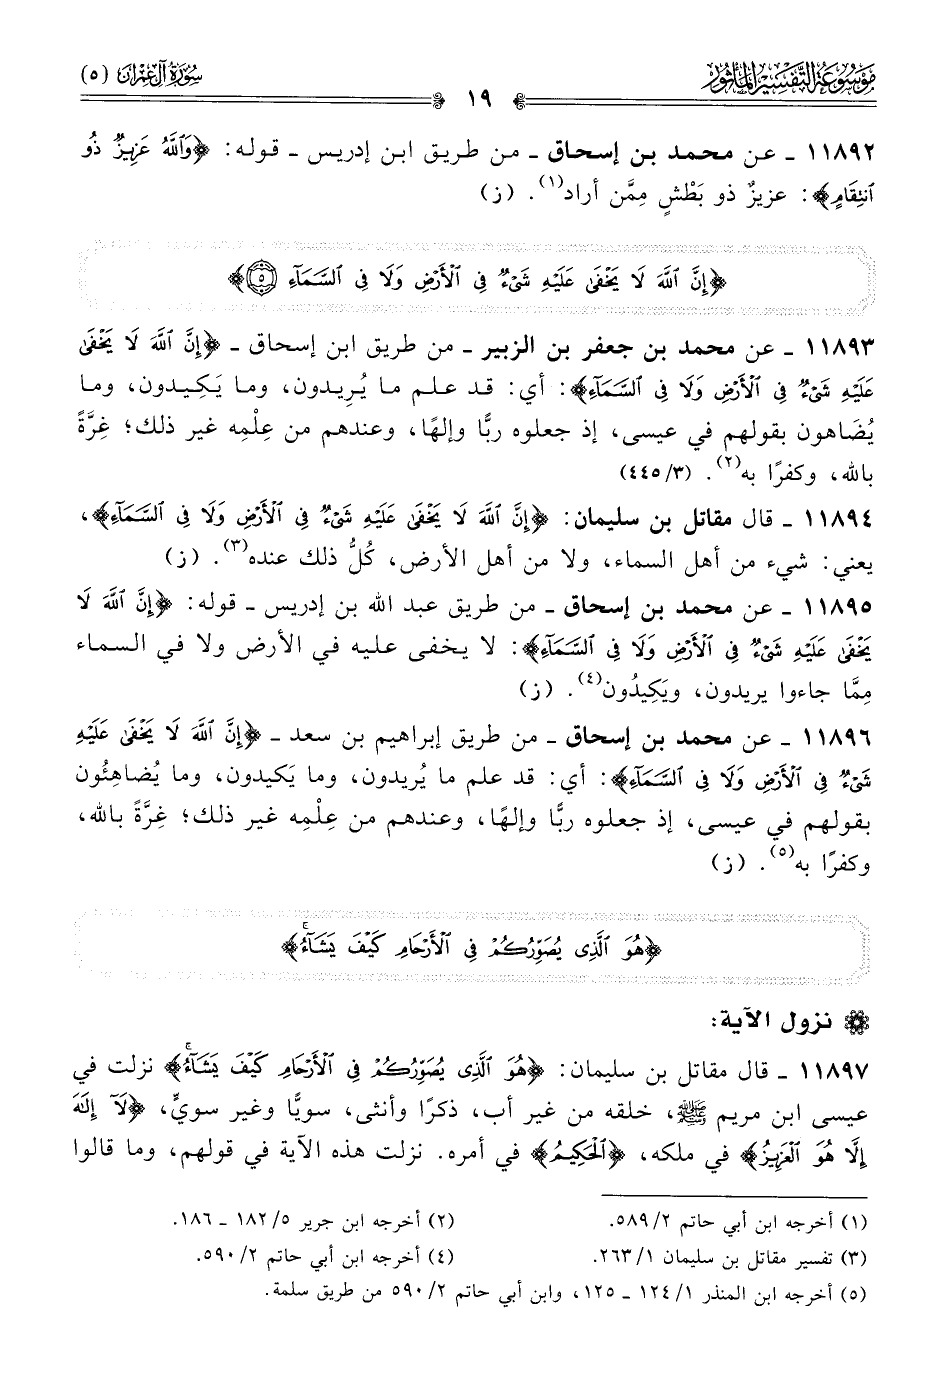 موسوعة التفسير المأثور
١٩
سورة آل عمران (٥)
١١٨٩٢ ـ عن محمد بن إسحاق ـ من طريق ابن إدريس ـ قوله: ﴿وَٱللَّهُ عَزِيزٌ ذُو
ٱنتِقَامٍ﴾: عزيزٌ ذو بَطْشٍ مِمَّن أراد(١). (ز)
﴿إِنَّ ٱللَّهَ لَا يَخْفَىٰ عَلَيْهِ شَىْءٌ فِى ٱلْأَرْضِ وَلَا فِى ٱلسَّمَآءِ ٥﴾
١١٨٩٣ ـ عن محمد بن جعفر بن الزبير ـ من طريق ابن إسحاق ـ ﴿إِنَّ ٱللَّهَ لَا يَخْفَىٰ
عَلَيْهِ شَىْءٌ فِى ٱلْأَرْضِ وَلَا فِى ٱلسَّمَآءِ﴾: أي: قد علم ما يُرِيدون، وما يَكِيدون، وما
يُضَاهون بقولهم في عيسى، إذ جعلوه ربًّا وإلهًا، وعندهم من عِلْمِه غير ذلك؛ غِرَّةً
بالله، وكفرًا به(٢). (٣/ ٤٤٥)
١١٨٩٤ ـ قال مقاتل بن سليمان: ﴿إِنَّ ٱللَّهَ لَا يَخْفَىٰ عَلَيْهِ شَىْءٌ فِى ٱلْأَرْضِ وَلَا فِى ٱلسَّمَآءِ﴾،
يعني: شيء من أهل السماء، ولا من أهل الأرض، كُلُّ ذلك عنده(٣). (ز)
١١٨٩٥ ـ عن محمد بن إسحاق ـ من طريق عبد الله بن إدريس ـ قوله: ﴿إِنَّ ٱللَّهَ لَا
يَخْفَىٰ عَلَيْهِ شَىْءٌ فِى ٱلْأَرْضِ وَلَا فِى ٱلسَّمَآءِ﴾: لا يخفى عليه في الأرض ولا في السماء
مِمَّا جاءوا يريدون، ويَكِيدُون(٤). (ز)
١١٨٩٦ ـ عن محمد بن إسحاق ـ من طريق إبراهيم بن سعد ـ ﴿إِنَّ ٱللَّهَ لَا يَخْفَىٰ عَلَيْهِ
شَىْءٌ فِى ٱلْأَرْضِ وَلَا فِى ٱلسَّمَآءِ﴾: أي: قد علم ما يُريدون، وما يَكيدون، وما يُضاهِئُون
بقولهم في عيسى، إذ جعلوه ربًّا وإلهًا، وعندهم من عِلْمِه غير ذلك؛ غِرَّةً بالله،
وكفرًا به(٥). (ز)
﴿هُوَ ٱلَّذِى يُصَوِّرُكُمْ فِى ٱلْأَرْحَامِ كَيْفَ يَشَآءُۚ﴾
نزول الآية:
١١٨٩٧ ـ قال مقاتل بن سليمان: ﴿هُوَ ٱلَّذِى يُصَوِّرُكُمْ فِى ٱلْأَرْحَامِ كَيْفَ يَشَآءُۚ﴾ نزلت في
عيسى ابن مريم ﷺ، خلقه من غير أب، ذكرًا وأنثى، سويًّا وغير سويٍّ، ﴿لَآ إِلَٰهَ
إِلَّا هُوَ ٱلْعَزِيزُ﴾ في ملكه، ﴿ٱلْحَكِيمُ﴾ في أمره. نزلت هذه الآية في قولهم، وما قالوا
(١) أخرجه ابن أبي حاتم ٢/ ٥٨٩.
(٢) أخرجه ابن جرير ٥/ ١٨٢ ـ ١٨٦.
(٣) تفسير مقاتل بن سليمان ١/ ٢٦٣.
(٤) أخرجه ابن أبي حاتم ٢/ ٥٩٠.
(٥) أخرجه ابن المنذر ١/ ١٢٤ ـ ١٢٥، وابن أبي حاتم ٢/ ٥٩٠ من طريق سلمة.